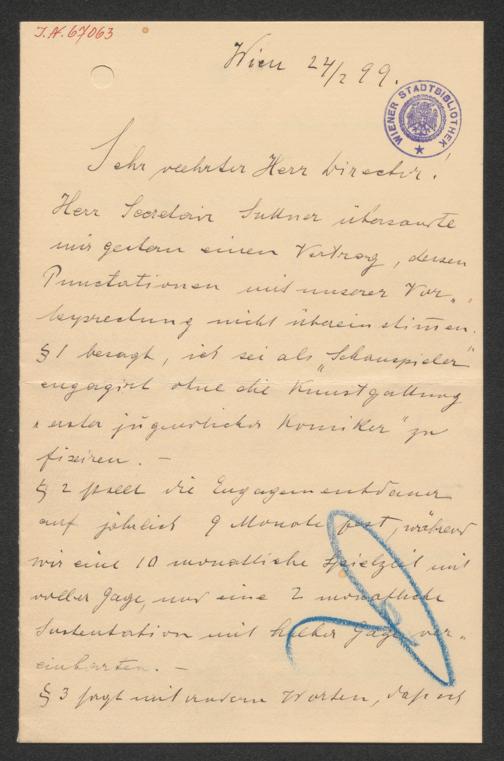 I.N. 67063
Wien 24/2 99.
WIENER STADTBIBLIOTHEK
Sehr veehrter Herr Director!
Herr Secretair Suttner übersandte
mir gestern einen Vertrag, dessen
Punctationen mit unserer Vor-
besprechung nicht übereinstim̄en.
§ 1 besagt, ich sei als „Schauspieler"
engagirt ohne die Kunstgattung
„erster jugendlicher Komiker" zu
fixiren. –
§ 2 stellt die Engagementdauer
auf jährlich 9 Monate fest, während
wir eine 10 monatliche Spielzeit mit
voller Gage, und eine 2 monatliche
Sustentation mit halber Gage ver-
einbarten. –
§ 3 sagt mit andern Worten, daß ich